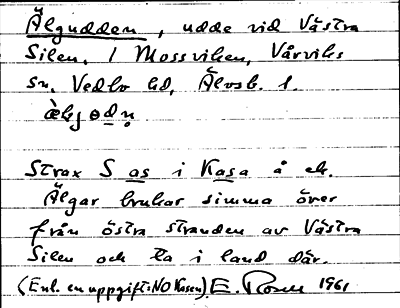 Älgudden, udde vid Västra
Silen, I Mossviken, Vårviks
sn, Vedbo hd, Älvsb. l.
Strax S as i Kasa å ek.
Älgar brukar simma över
från östra stranden av Västra
Silen och ta i land där.
(Enl. en uppgift: NO Kasen). E. Rosen 1961